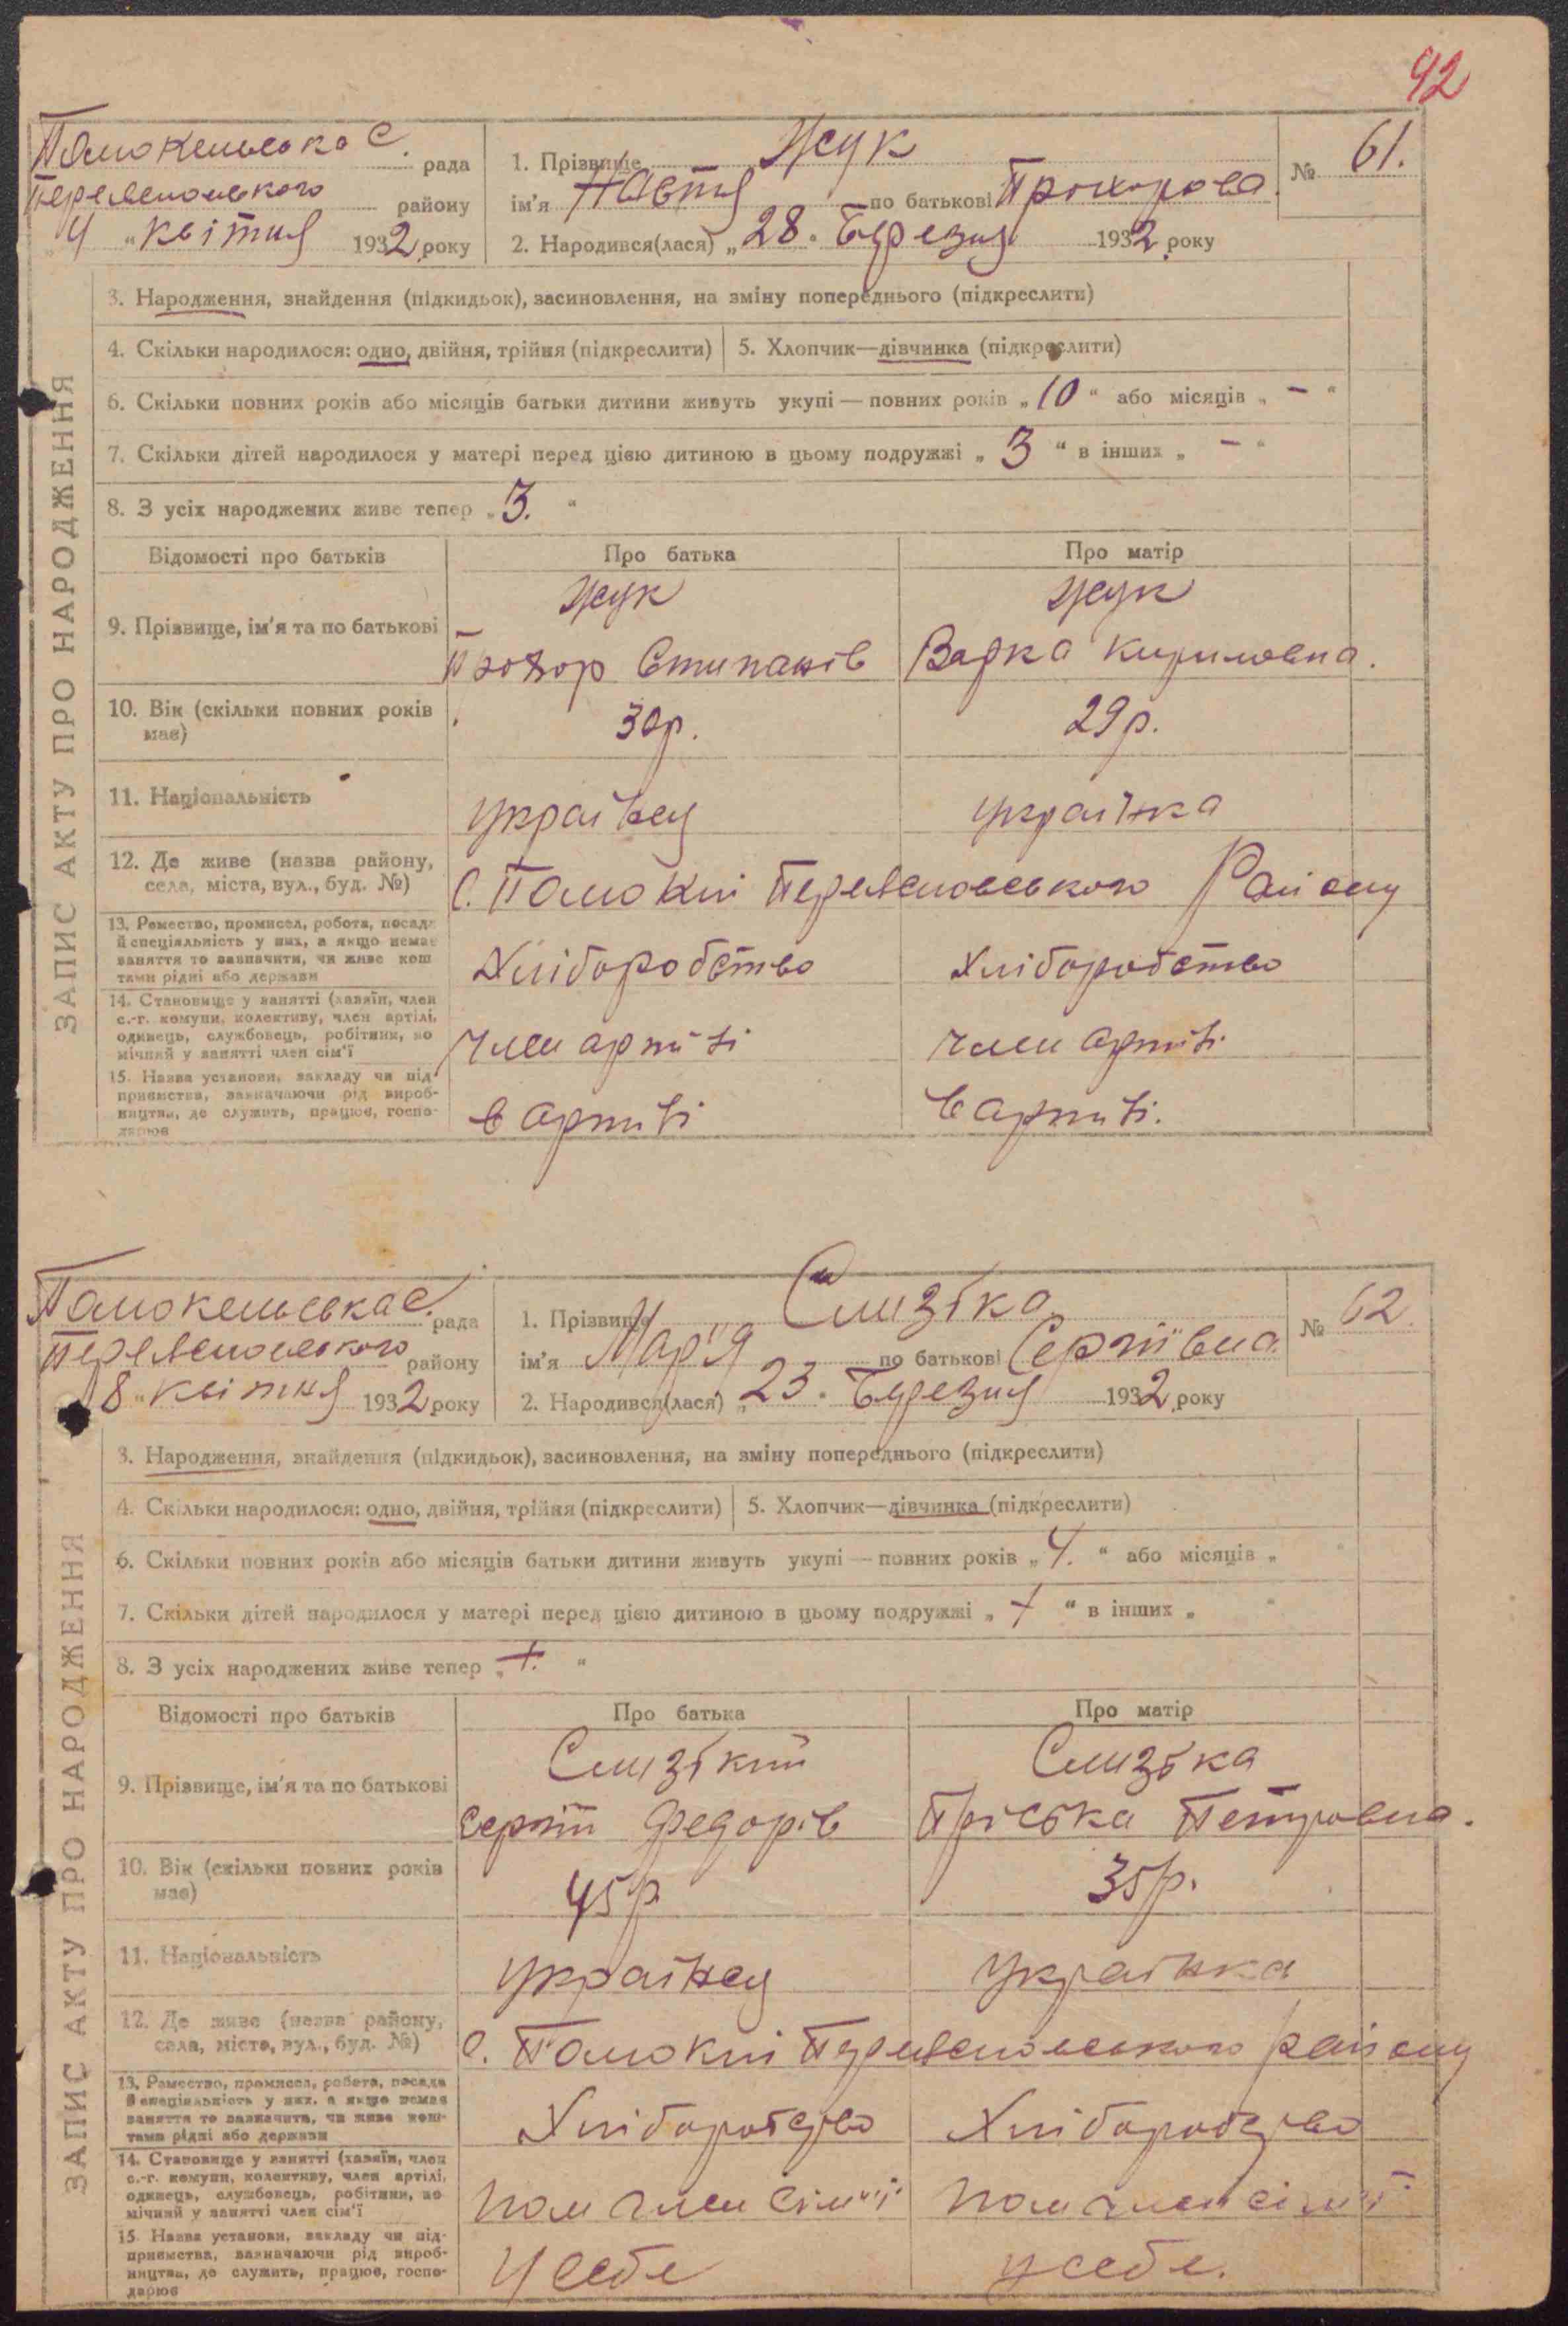 92
Памокельська С. рада
Переясловського району
"4" квітня 1932 року
1. Прізвище Жук
№ 61.
ім'я Настя по батькові Прохорова
2. Народився(лася) „28" Березня 1932 року
ЗАПИС АКТУ ПРО НАРОДЖЕННЯ
3. Народження, знайдення (підкидьок), засиновлення, на зміну попереднього (підкреслити)
4. Скільки народилося: одно, двійня, трійня (підкреслити)
5. Хлопчик—дівчинка (підкреслити)
6. Скільки повних років або місяців батьки дитини живуть укупі — повних років „10" або місяців „ – "
7. Скільки дітей народилося у матері перед цією дитиною в цьому подружжі „ 3 " в інших „ – "
8. З усіх народжених живе тепер „ 3. "
Відомості про батьків Про батька Про матір
9. Прізвище, ім'я та по батькові
Жук Жук
Прохор Степанів Варка Кириловна.
10. Вік (скільки повних років має)
30р. 29р.
11. Національність
українец українка
12. Де живе (назва району, села, міста, вул., буд. №)
С. Памоклі Переясловського Району
13. Ремество, промисел, робота, посада
й спеціяльність у них, а якщо немає
заняття то зазначити, чи живе кош
тами рідні або держави
Хліборобство Хліборобство
14. Становище у занятті (хазяїн, член
с.-г. комуни, колективу, член артілі,
одинець, службовець, робітник, по
мічний у занятті член сім'ї
член артілі член артілі.
15. Назва установи, закладу чи під-
приємства, зазначаючи рід вироб-
ництва, де служить, працює, госпо-
дарює
в артілі в артілі.
Памокельська С. рада
Переясловського району
8 " квітня 1932 року
1. Прізвище Слизька
№ 62.
ім'я Мар'я по батькові Сергіївна
2. Народився(лася) „23" Березня 1932 року
ЗАПИС АКТУ ПРО НАРОДЖЕННЯ
3. Народження, знайдення (підкидьок), засиновлення, на зміну попереднього (підкреслити)
4. Скільки народилося: одно, двійня, трійня (підкреслити)
5. Хлопчик—дівчинка (підкреслити)
6. Скільки повних років або місяців батьки дитини живуть укупі — повних років „ 4. " або місяців „ "
7. Скільки дітей народилося у матері перед цією дитиною в цьому подружжі „ + " в інших „ "
8. З усіх народжених живе тепер „ +. "
Відомості про батьків Про батька Про матір
9. Прізвище, ім'я та по батькові
Слизький Слизька
Сергій Федорів Пріська Петровна.
10. Вік (скільки повних років має)
45р 35р.
11. Національність
українец українка
12. Де живе (назва району, села, міста, вул., буд. №)
С. Памоклі Переясловського району
13. Ремество, промисел, робота, посада
й спеціяльність у них, а якщо немає
заняття то зазначити, чи живе кош-
тами рідні або держави
Хліборобство Хліборобство
14. Становище у занятті (хазяїн, член
с.-г. комуни, колективу, член артілі,
одинець, службовець, робітник, по
мічний у занятті член сім'ї
пом член сім'ї пом член сім'ї
15. Назва установи, закладу чи під-
приємства, зазначаючи рід вироб-
ництва, де служить, працює, госпо-
дарює
У себе у себе.